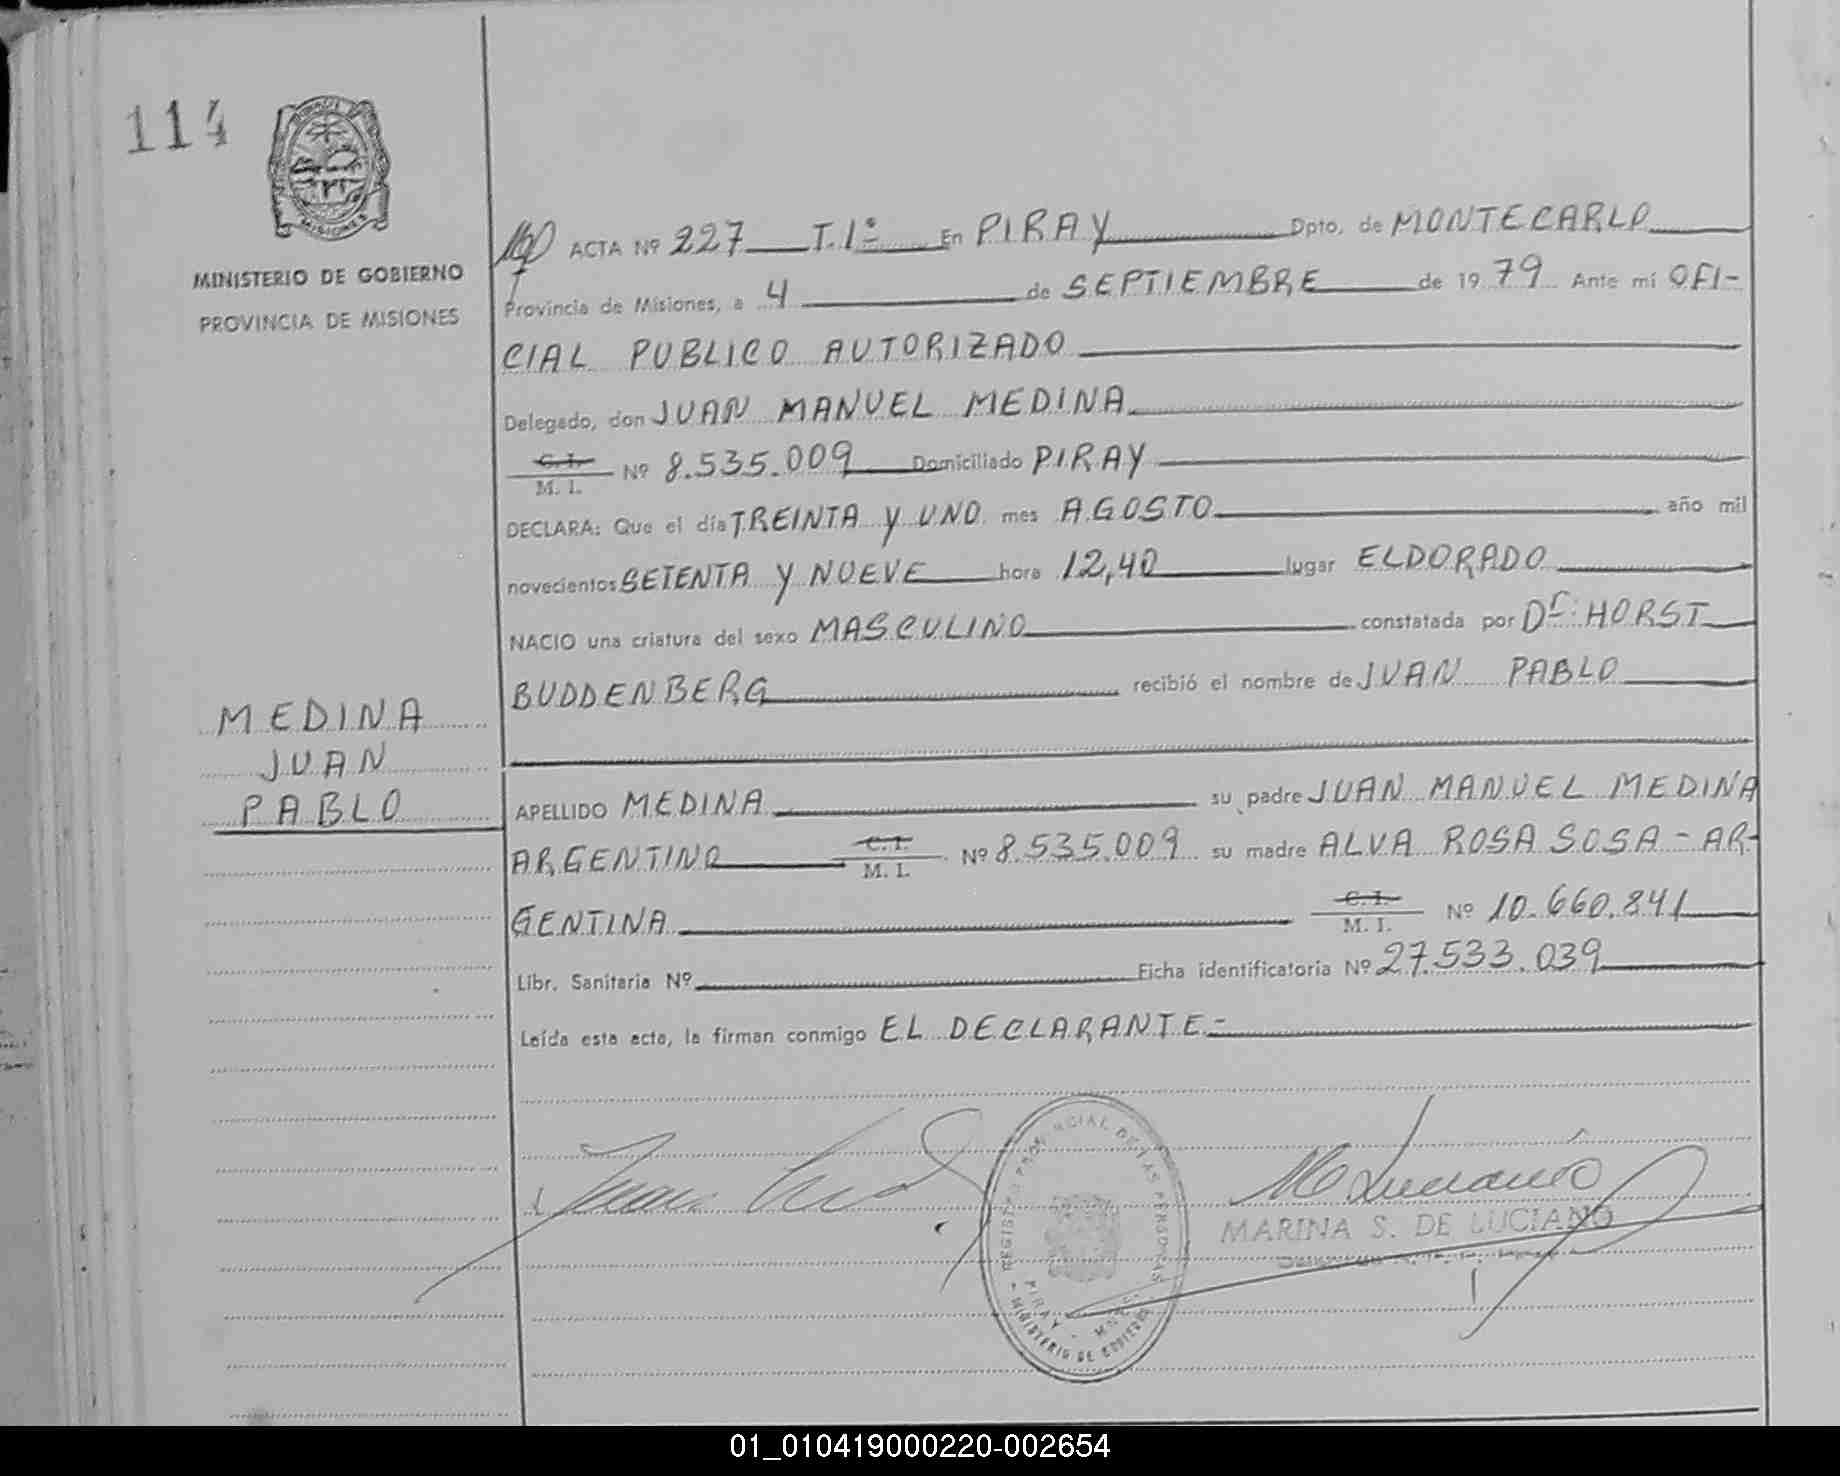 114
MISIONES
MINISTERIO DE GOBIERNO
PROVINCIA DE MISIONES
MEDINA
JUAN
PABLO
ACTA Nº 227 T.1º En PIRAY Dpto. de MONTECARLO
Provincia de Misiones, a 4 de SEPTIEMBRE de 1979 Ante mí OFI-
CIAL PUBLICO AUTORIZADO
Delegado, don JUAN MANUEL MEDINA
C. I. / M. I. Nº 8.535.009 Domiciliado PIRAY
DECLARA: Que el día TREINTA Y UNO mes AGOSTO año mil
novecientos SETENTA Y NUEVE hora 12,40 lugar ELDORADO
NACIO una criatura del sexo MASCULINO constatada por Dr: HORST
BUDDENBERG recibió el nombre de JUAN PABLO
APELLIDO MEDINA su padre JUAN MANUEL MEDINA
ARGENTINO C. I. / M. I. Nº 8.535.009 su madre ALVA ROSA SOSA - AR-
GENTINA C. I. / M. I. Nº 10.660.841
Libr. Sanitaria Nº Ficha identificatoria Nº 27.533.039
Leída esta acta, la firman conmigo EL DECLARANTE.-
REGISTRO PROVINCIAL DE LAS PERSONAS
PIRAY - MNES.
- MINISTERIO DE GOBIERNO
MARINA S. DE LUCIANO
01_010419000220-002654